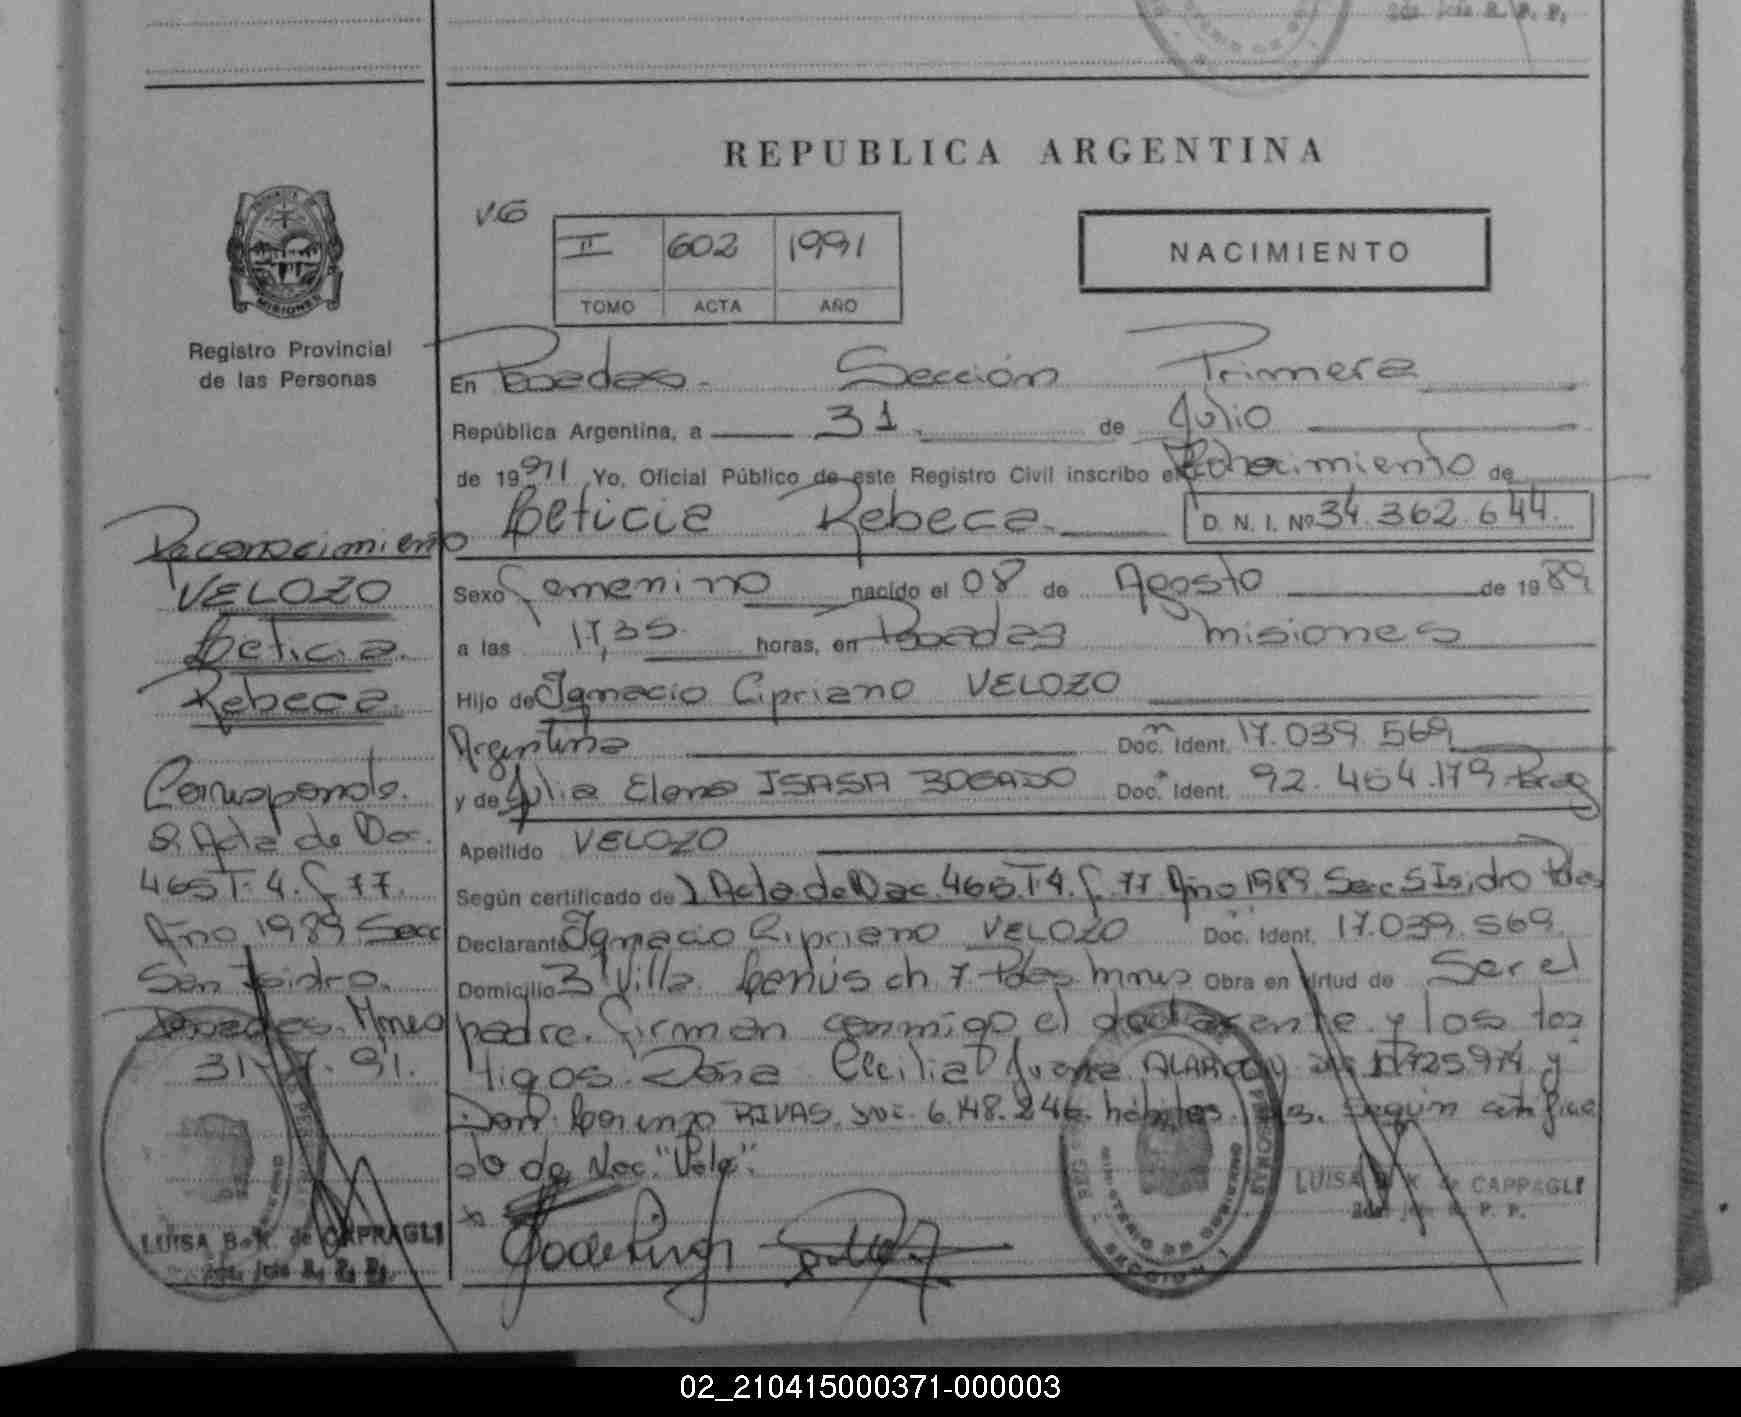 2da. Jefa R. P. P.
REPUBLICA ARGENTINA
PROVINCIA DE
MISIONES
Registro Provincial
de las Personas
V.G
II 602 1991
TOMO ACTA AÑO
NACIMIENTO
En Posadas. Sección Primera
República Argentina, a 31 de Julio
de 1991 Yo, Oficial Público de este Registro Civil inscribo el Reconocimiento de
Leticia Rebeca. D. N. I. Nº 34.362.644.
Sexo Femenino nacido el 08 de Agosto de 1989
a las 17,35. horas, en Posadas Misiones
Hijo de Ignacio Cipriano VELOZO
Argentina Doc. Ident. 17.039.569
y de Julia Elena ISASA BOGADO Doc. Ident. 92.464.179 Parag
Apellido VELOZO
Según certificado de Acta de Nac. 465 T4. f. 77 Año 1989 Secc. S Isidro Pdas
Declarante Ignacio Cipriano VELOZO Doc. Ident. 17.039.569.
Domicilio 3 Villa Lanús ch. 7 Pdas Mnes Obra en virtud de Ser el
padre. Firman conmigo el declarante y los tes
tigos. Doña Cecilia Juana ALARCON y
Don Lorenzo RIVAS, 6.148.246. hábiles. Según certifica
do de Nac. "Vale".
LUISA B. K. de CAPPAGLI
2da. Jefa R. P. P.
Reconocimiento
VELOZO
Leticia.
Rebeca.
Corresponde.
a Acta de Nac.
465 T. 4. f 77.
Año 1989 Secc
San Isidro.
Posadas. Mnes
31-7-91.
LUISA B. K. de CAPPAGLI
2da. Jefa R. P. P.
MINISTERIO DE GOBIERNO
02_210415000371-000003